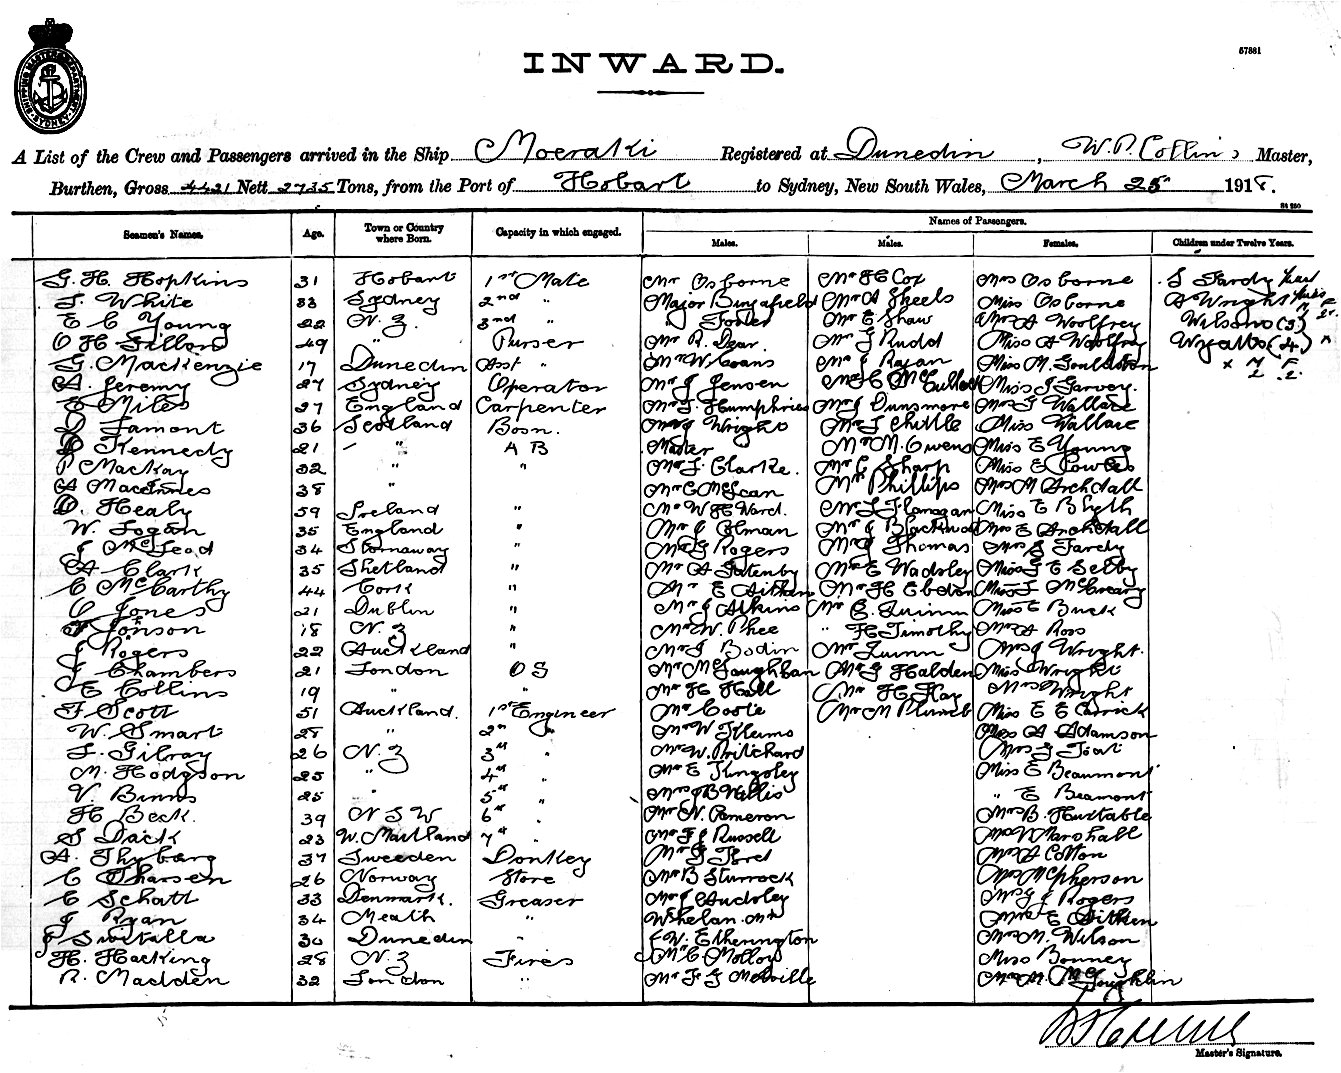 57881
INWARD.
A List of the Crew and Passengers arrived in the Ship Moeraki Registered at Dunedin, W.P. Collins Master,
Burthen, Gross 4421 Nett 2735 Tons, from the Port of Hobart to Sydney, New South Wales, March 25th 1918.
Seamen's Names. Age. Town or Country where Born. Capacity in which engaged. Names of Passengers.
Males. Males. Females. Children under Twelve Years.
G. H. Hopkins 31 Hobart 1st Mate Mr Osborne Mr H Cox Mrs Osborne S Tardy
White 33 Sydney 2nd " Major Bingafield Mr A Skeels Miss Osborne A Wright
E C Young 22 N.Z. 3rd " Mr E Shaw Mrs A Woolfrey Wilsons (3)
49 " Purser Mr R. Dear Mr J Rudd Miss A Woolfrey Wyatts (4)
G. Mackenzie 17 Dunedin Asst " Mr W Evans Mr J Ryan Miss M. Gouldston x M F
A. Jeremy 27 Sydney Operator Mr J Jensen Miss J Garvey. 2 2
E Miles 27 England Carpenter Mr T. Humphries Mr J Dunsmore Mrs G Wallace
Lamont 36 Scotland Bosn. Wright Miss Wallace
Kennedy 21 " A B Master Mr M. Owens Miss E Young
P Mackay 32 " " Mr L. Clarke. Mr C Sharp Miss E Cowles
A MacInnes 38 " Mr C McLean Mr Phillips Mrs M Archdall
D. Healy 59 Ireland " Mr W H Ward. Mr L Flanagan Miss E Blyth
W. Logan 35 England " Mr J Elman Mr J Blackwood Mrs E Archdall
J McLeod 34 Stornaway " Mr G Rogers Mr J Thomas Mrs J Tardy
A. Clark 35 Shetland " Mr A Gatenby Mr E Wadsley Miss G E Selby
C McCarthy 44 Cork " Mr E Aitken Mr H Ebdon Miss L McCreary
C Jones 21 Dublin " Mr J Atkins Mr C. Quinn Miss E Buck
Jonson 18 N.Z " Mr W. Phee " H Timothy Mrs A Ross
J Rogers 22 Auckland " Mr J Bodin Mr Quinn Mrs J Wright.
J Chambers 21 London O S Mr McLoughlan Mr G Halden Miss Wright
E Collins 19 " " Mr H Hall Mr H Hay Mrs Wright
F. Scott 51 Auckland. 1st Engineer Mr Coote Mr M Plumb Miss E E Carrick
W. Smart 28 " 2nd " Miss A Adamson
L. Gilray 26 N.Z 3rd " Mr W. Pritchard
M. Hodgson 25 " 4th " Mr E Kingsley Miss E Beaumont
V. Binns 25 " 5th " Willis " E Beamont
H Beck. 39 N S W 6th " Mr N. Cameron Mrs B. Huxtable
S Dack 23 W. Maitland 7th " Mr F J Russell Marshall
A. Thyberg 37 Sweeden Donkey Mr G Ford Mrs A Cotton
C Tharsen 26 Norway Store Mr B Sturrock Mrs McPherson
C Schatt 33 Denmark. Greaser Mr J Audsley Mrs G J Rogers
J Ryan 34 Meath " Whelan Mr Mrs E Aitken
J Switalla 30 Dunedin " W. Etherington Mrs M. Wilson
H. Hacking 28 N.Z Fires Mr C. Molloy Miss Bonney
R. Madden 32 London " Mr F G Melville Mrs M. McLoughlin
Master's Signature.